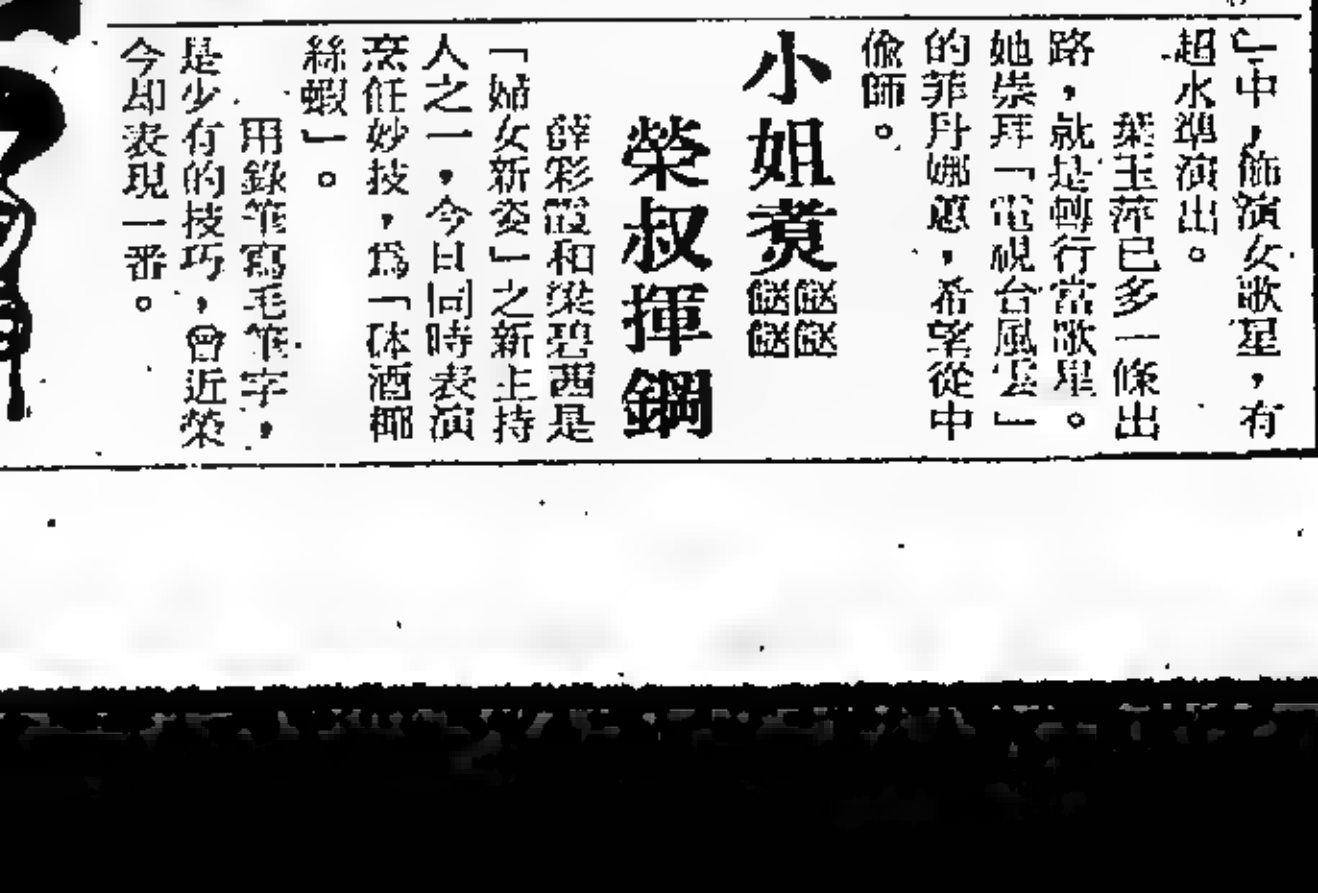 」中，飾演女歌星，有
超水準演出。
葉玉萍已多一條出
路，就是轉行當歌星。
她崇拜「電視台風雲」
的菲丹娜惠，希望從中
偸師。
小姐煑餸餸餸餸
榮叔揮鋼
薛彩霞和梁碧西是
「婦女新姿」之新主持
人之一，今日同時表演
烹飪妙技，爲「砵酒椰
絲蝦」。
用鋼筆寫毛筆字，
是少有的技巧，曾近榮
今却表現一番。